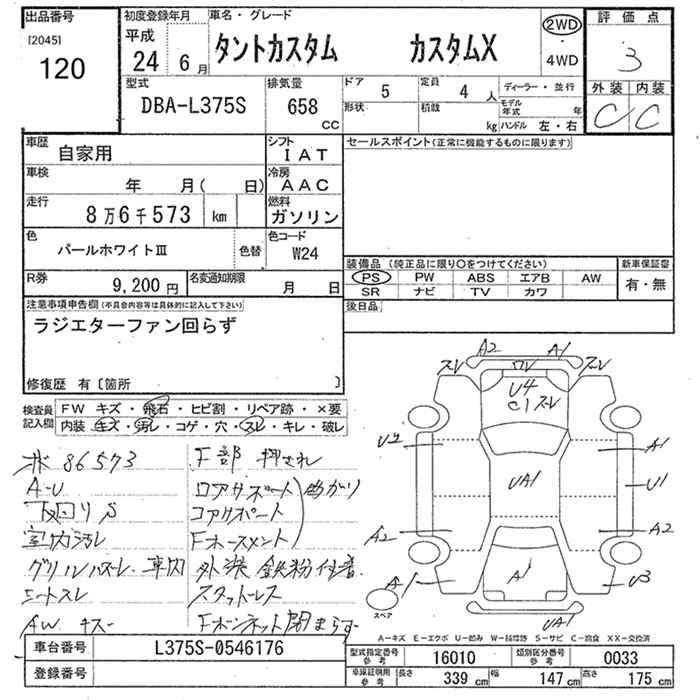 出品番号
[2045]
120
初度登録年月
平成
24 6月
車名・グレード
タントカスタム カスタムX
2WD
・
4WD
評価点
3
外装 内装
C C
型式
DBA-L375S
排気量
658
CC
ドア
5
定員
4人
ディーラー・並行
形状
積載
kg
モデル年式 年
ハンドル 左・右
車歴
自家用
シフト
IAT
車検
年 月( 日)
冷房
AAC
走行
8万6千573 km
燃料
ガソリン
色
パールホワイトⅢ
色替
色コード
W24
R券
9,200円
名変通知期限
月 日
セールスポイント(正常に機能するものに限ります)
装備品(純正品に限り〇をつけてください)
新車保証書
PS PW ABS エアB AW
SR ナビ TV カワ
有・無
後日品
注意事項申告欄(不具合内容等は具体的に記入して下さい)
ラジエターファン回らず
修復歴 有〔箇所 〕
検査員記入欄
FW キズ・飛石・ヒビ割・リペア跡・×要
内装 キズ・汚レ・コゲ・穴・スレ・キレ・破レ
86573
F部 押され
A-U
ロアサポート
曲がり
下回りS
コアサポート
室内汚レ
Fホースメント
グリルハズレ.車内
外装 鉄粉付着
シートスレ
スタットレス
AW キズ
Fボンネット閉まらず
A2
A1
スレ
ワレ
スレ
U4
C1 スレ
U2
A1
UA1
U1
A2
A2
A1
A1
U3
UA1
スペア
A-キズ E-エクボ U-凹み W-補修跡 S-サビ C-腐食 XX-交換済
車台番号
L375S-0546176
登録番号
型式指定番号
参考
16010
類別区分番号
参考
0033
車庫証明用
参考
長さ
339 cm
幅
147 cm
高さ
175 cm